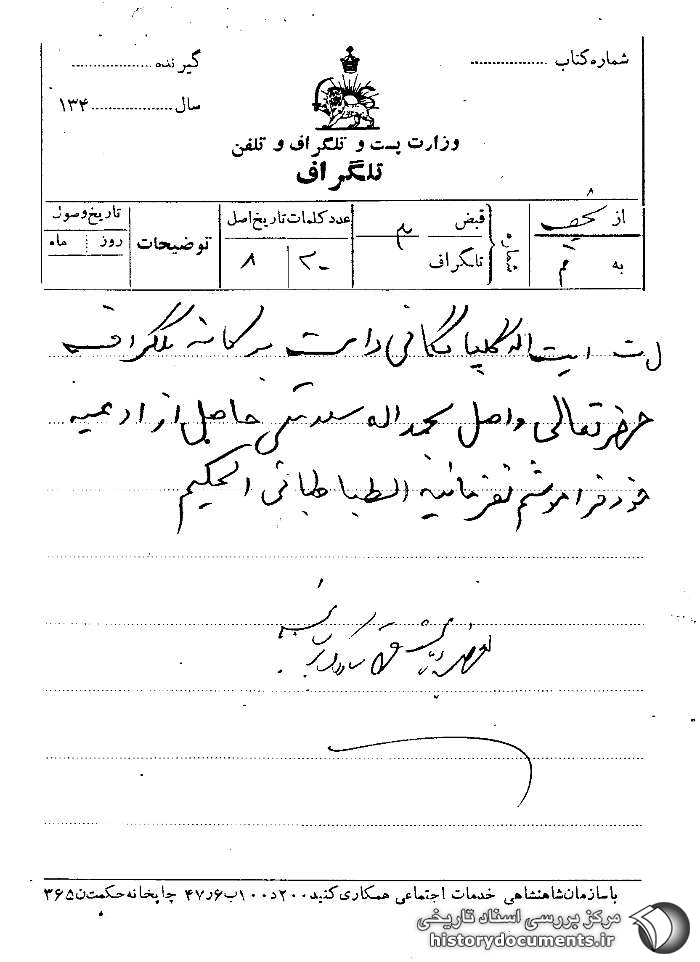 شماره کتاب
گیرنده
سال ۱۳۴
وزارت پست و تلگراف و تلفن
تلگراف
از نجف
به قم
شماره
قبض
تلگراف
۳
عدد کلمات
تاریخ اصل
۲۰
۸
توضیحات
تاریخ وصول
روز
ماه
ایت اله گلپایگانی دامت برکاته تلگراف
حضرتعالی واصل بحمداله سلامتی حاصل از ادعیه
خود فراموشم نفرمائید الطباطبائی الحکیم
با سازمان شاهنشاهی خدمات اجتماعی همکاری کنید ۲۰۰د۱۰۰ب۴۷٫۶ چاپخانه حکمت ن۳۶۵
مرکز بررسی اسناد تاریخی
historydocuments.ir